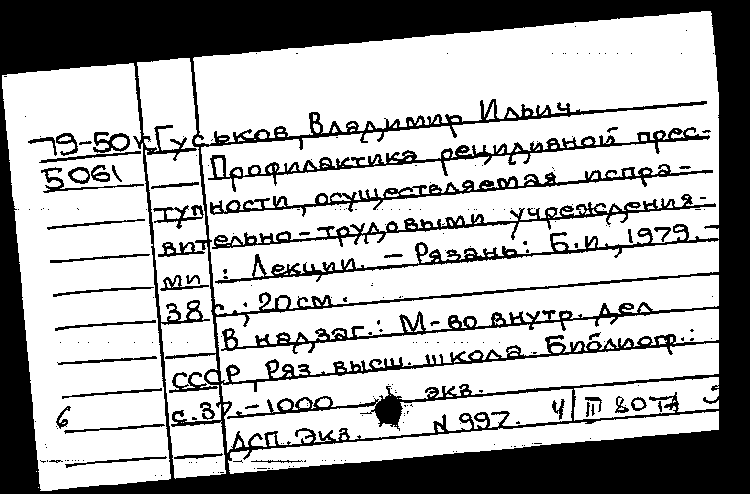 79-50к Гуськов, Владимир Ильич.
5061 Профилактика рецидивной прес-
тупности, осуществляемая испра-
вительно-трудовыми учреждения-
ми : Лекции. – Рязань: Б.и., 1979. –
38 с.; 20 см.
В надзаг.: М-во внутр. дел
СССР, Ряз. высш. школа. Библиогр.:
6 с. 37. – 1000 экз.
ДСП. Экз. N 997. 4/III 80